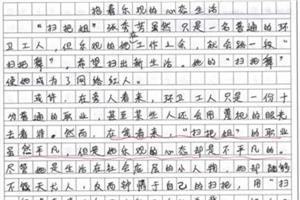 抱着乐观的心态生活
“扫把姐”张秀芳虽然只是一名普通的环
卫工人，但乐观的她在工作之余，就会跳一段“扫
把舞”，努力扫出新生活。她的“扫把舞”
使她成为了网络红人。
或许，在旁人看来，环卫工人只是一份十
分普通的职业，甚至某些人还会用蔑视的眼光
去看待。然而，在我看来，“扫把姐”的职业
虽然平凡，但是她乐观的心态却是不平凡的。
尽管她是生活在社会底层的小人物，她却能够
不做天龙人，反而钟情于自己的扫把，用“扫